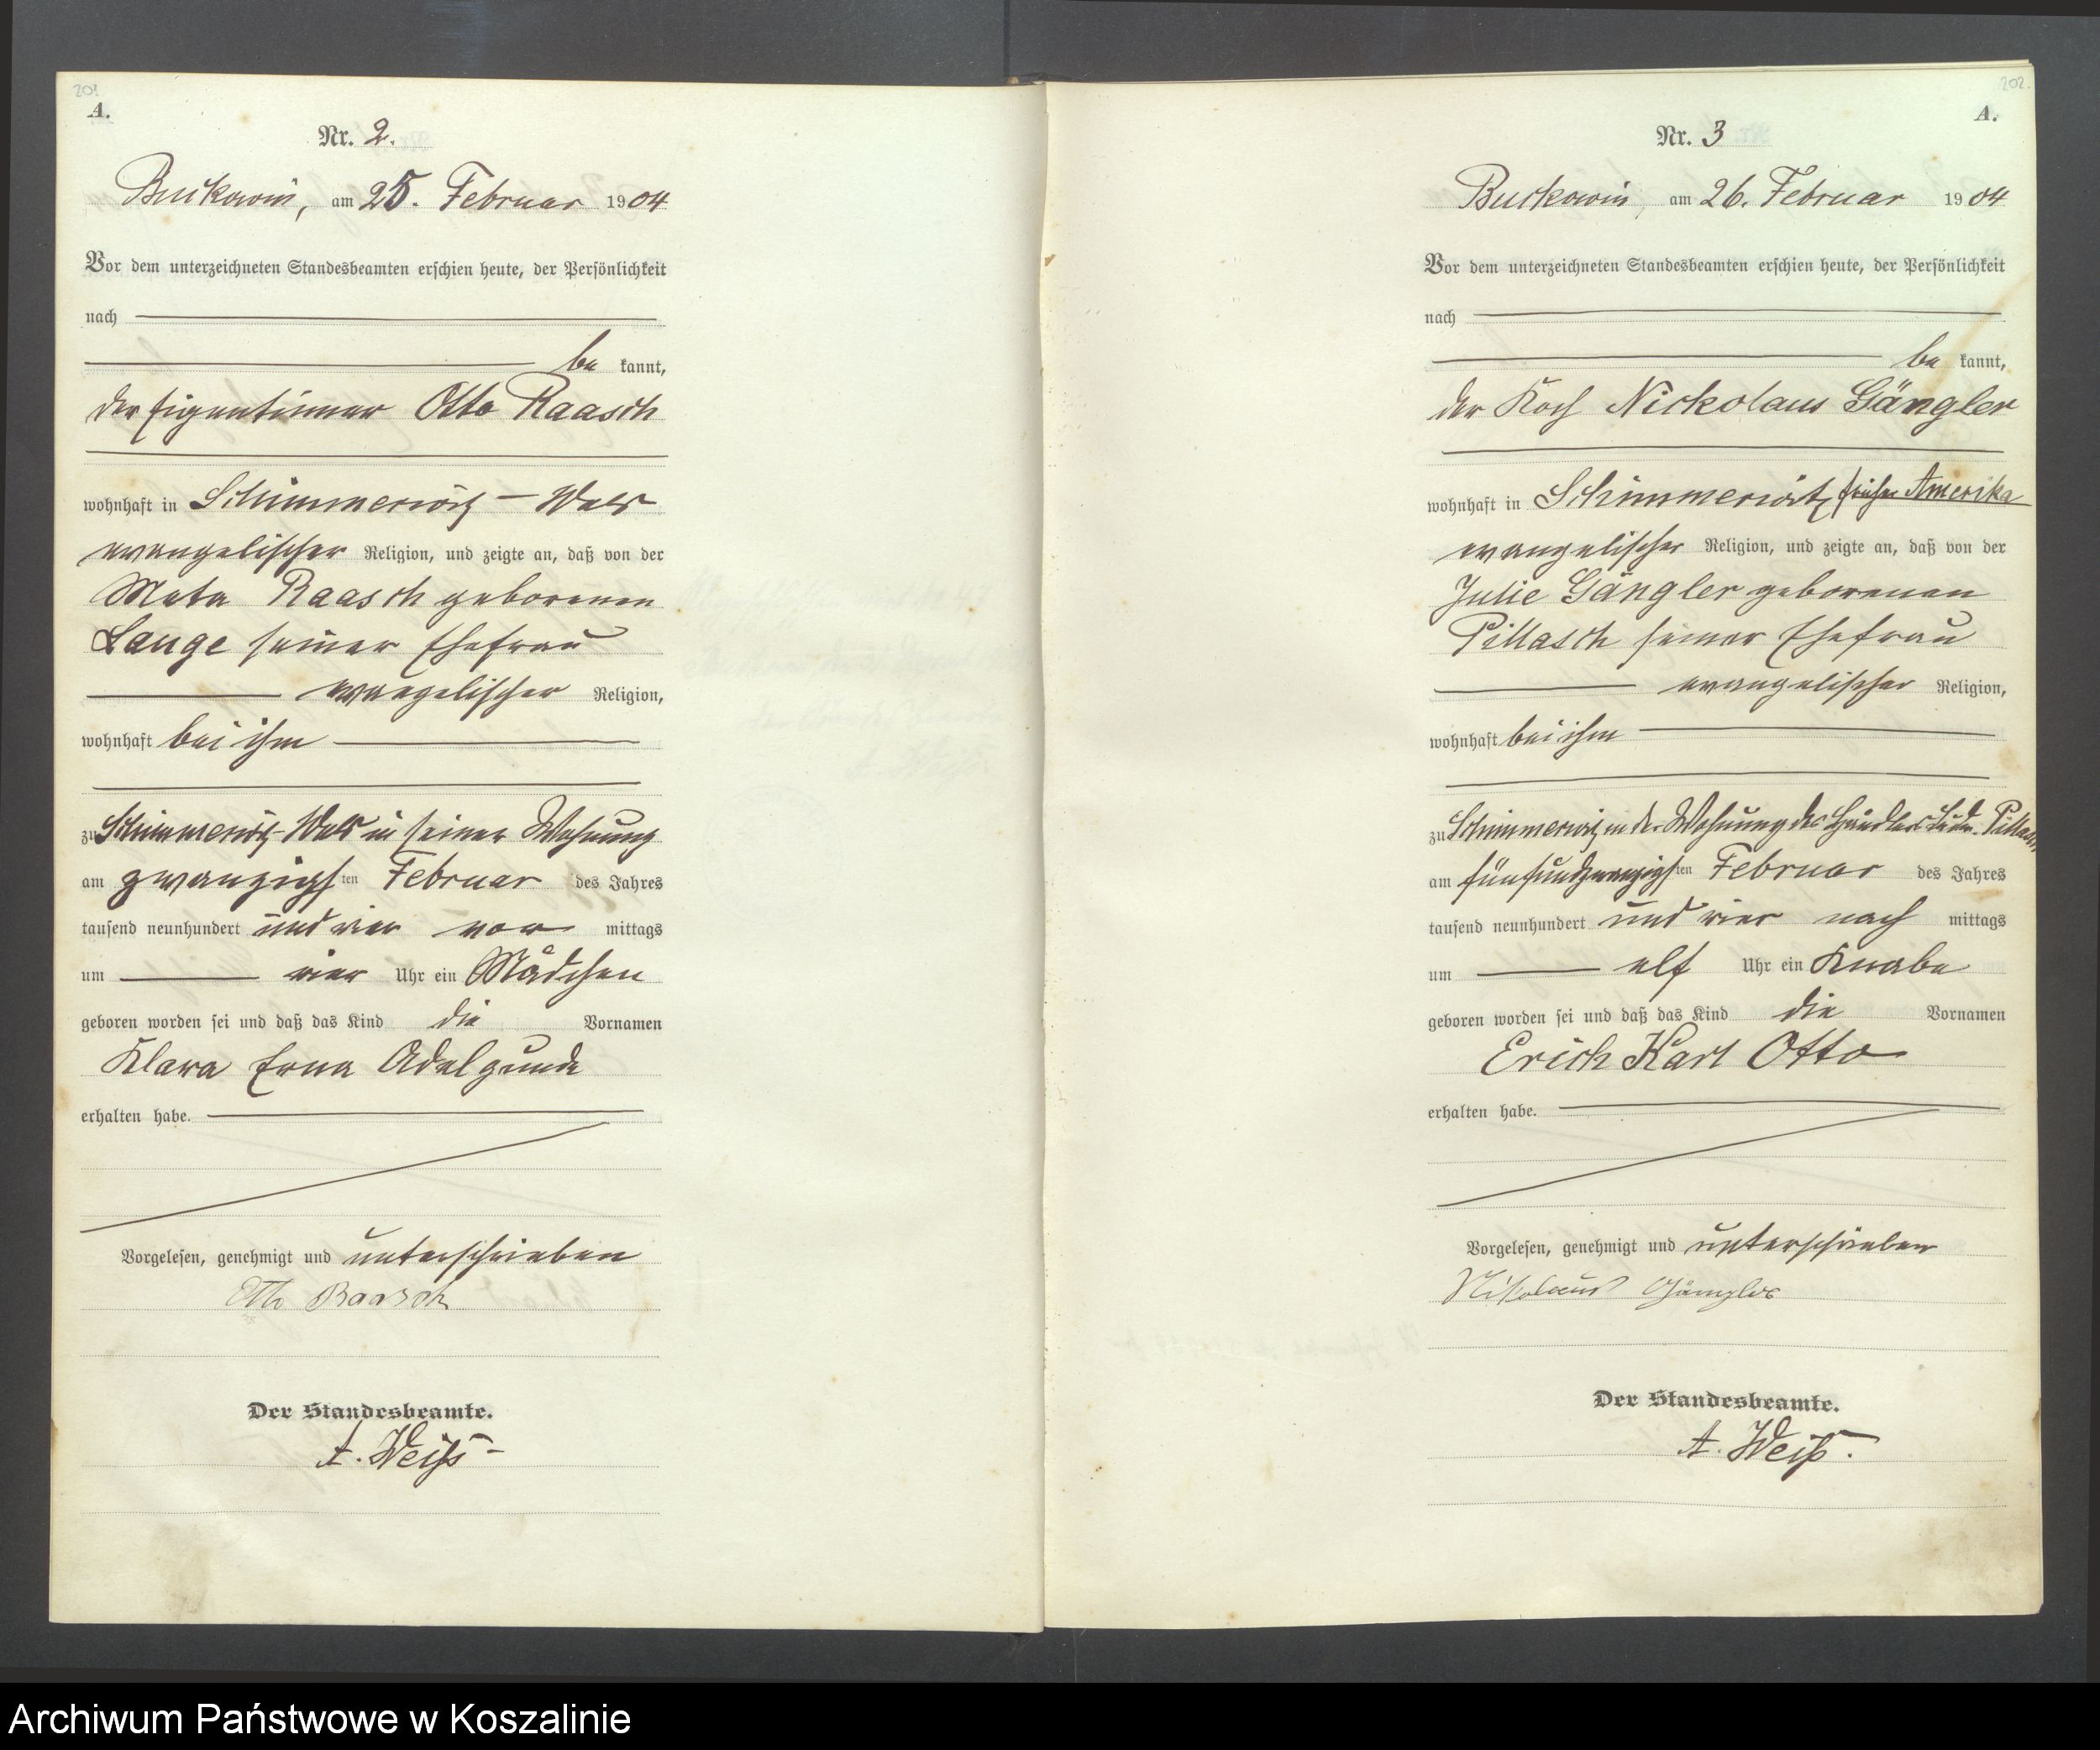 201
A.
Nr. 2.
Buckowin, am 25. Februar 1904
Vor dem unterzeichneten Standesbeamten erschien heute, der Persönlichkeit
nach
be kannt,
der Eigentümer Otto Raasch
wohnhaft in Schimmerwitz - Wald
evangelischer Religion, und zeigte an, daß von der
Meta Raasch geborenen
Lange seiner Ehefrau
evangelischer Religion,
wohnhaft bei ihm
zu Schimmerwitz-Wald in seiner Wohnung
am zwanzigsten Februar des Jahres
tausend neunhundert und vier vor mittags
um vier Uhr ein Mädchen
geboren worden sei und daß das Kind die Vornamen
Klara Erna Adelgunde
erhalten habe.
Vorgelesen, genehmigt und unterschrieben
Otto Raasch
Der Standesbeamte.
A. Weiß
202.
A.
Nr. 3
Buckowin, am 26. Februar 1904
Vor dem unterzeichneten Standesbeamten erschien heute, der Persönlichkeit
nach
be kannt,
der Koch Nickolaus Gängler
wohnhaft in Schimmerwitz früher Amerika
evangelischer Religion, und zeigte an, daß von der
Julie Gängler geborenen
Pillasch seiner Ehefrau
evangelischer Religion,
wohnhaft bei ihm
zu Schimmerwitz in der Wohnung des Händlers Pillasch
am fünfundzwanzigsten Februar des Jahres
tausend neunhundert und vier nach mittags
um elf Uhr ein Knabe
geboren worden sei und daß das Kind die Vornamen
Erich Karl Otto
erhalten habe.
Vorgelesen, genehmigt und unterschrieben
Nikolaus Gängler
Der Standesbeamte.
A. Weiß.
Archiwum Państwowe w Koszalinie